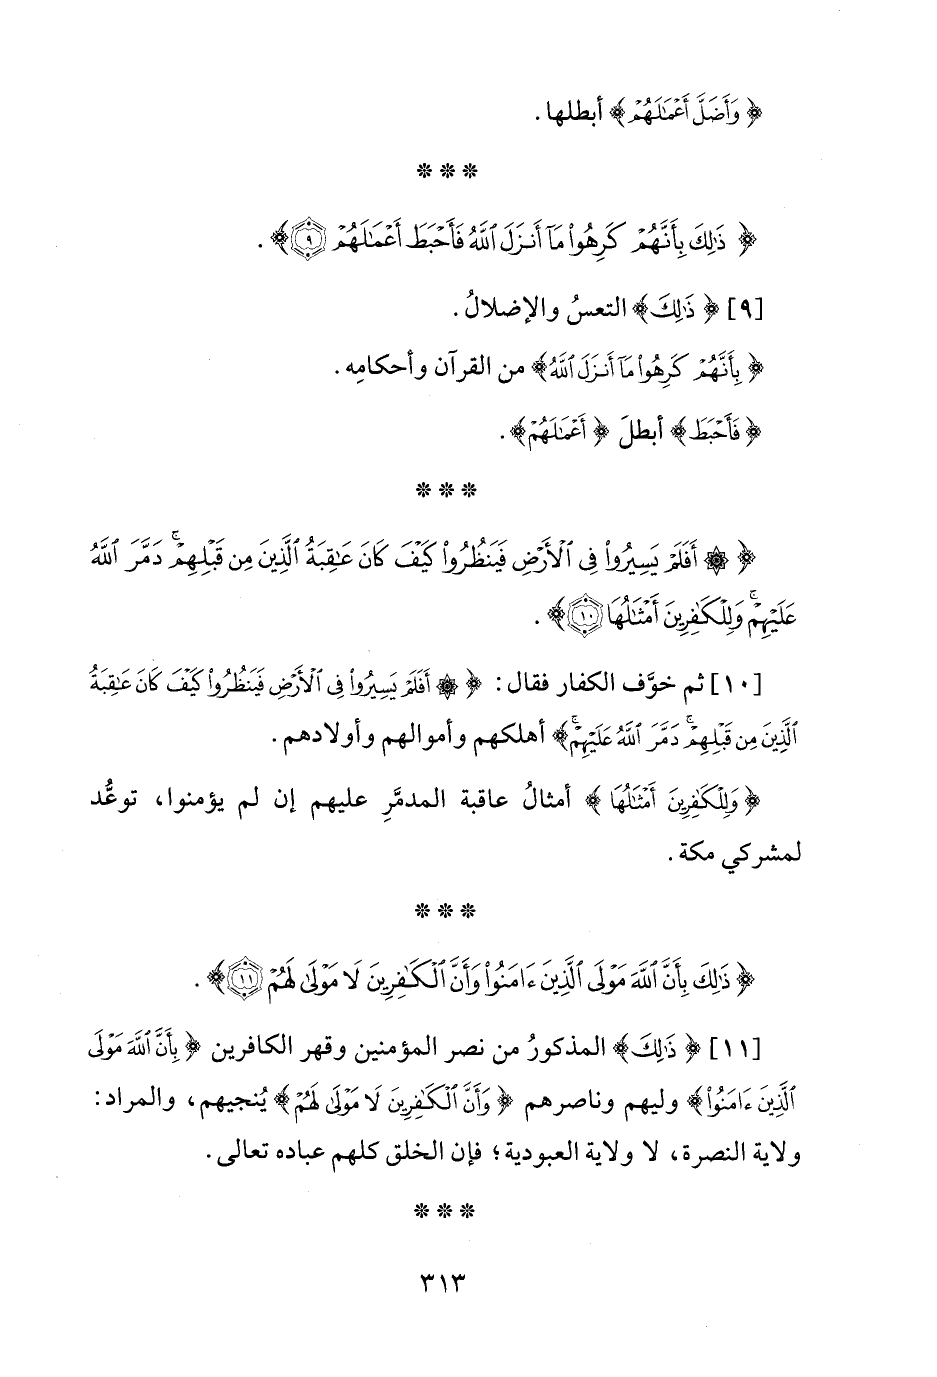 ﴿وَأَضَلَّ أَعْمَٰلَهُمْ﴾ أبطلها.
***
﴿ذَٰلِكَ بِأَنَّهُمْ كَرِهُوا۟ مَآ أَنزَلَ ٱللَّهُ فَأَحْبَطَ أَعْمَٰلَهُمْ ٩﴾.
[٩] ﴿ذَٰلِكَ﴾ التعسُ والإضلالُ.
﴿بِأَنَّهُمْ كَرِهُوا۟ مَآ أَنزَلَ ٱللَّهُ﴾ من القرآن وأحكامِه.
﴿فَأَحْبَطَ﴾ أبطلَ ﴿أَعْمَٰلَهُمْ﴾.
***
﴿۞ أَفَلَمْ يَسِيرُوا۟ فِى ٱلْأَرْضِ فَيَنظُرُوا۟ كَيْفَ كَانَ عَٰقِبَةُ ٱلَّذِينَ مِن قَبْلِهِمْ ۚ دَمَّرَ ٱللَّهُ
عَلَيْهِمْ ۚ وَلِلْكَٰفِرِينَ أَمْثَٰلُهَا ١٠﴾.
[١٠] ثم خوَّف الكفار فقال: ﴿۞ أَفَلَمْ يَسِيرُوا۟ فِى ٱلْأَرْضِ فَيَنظُرُوا۟ كَيْفَ كَانَ عَٰقِبَةُ
ٱلَّذِينَ مِن قَبْلِهِمْ ۚ دَمَّرَ ٱللَّهُ عَلَيْهِمْ ۚ﴾ أهلكهم وأموالهم وأولادهم.
﴿وَلِلْكَٰفِرِينَ أَمْثَٰلُهَا﴾ أمثالُ عاقبة المدمَّرِ عليهم إن لم يؤمنوا، توعُّد
لمشركي مكة.
***
﴿ذَٰلِكَ بِأَنَّ ٱللَّهَ مَوْلَى ٱلَّذِينَ ءَامَنُوا۟ وَأَنَّ ٱلْكَٰفِرِينَ لَا مَوْلَىٰ لَهُمْ ١١﴾.
[١١] ﴿ذَٰلِكَ﴾ المذكورُ من نصر المؤمنين وقهر الكافرين ﴿بِأَنَّ ٱللَّهَ مَوْلَى
ٱلَّذِينَ ءَامَنُوا۟﴾ وليهم وناصرهم ﴿وَأَنَّ ٱلْكَٰفِرِينَ لَا مَوْلَىٰ لَهُمْ﴾ يُنجيهم، والمراد:
ولاية النصرة، لا ولاية العبودية؛ فإن الخلق كلهم عباده تعالى.
***
٣١٣